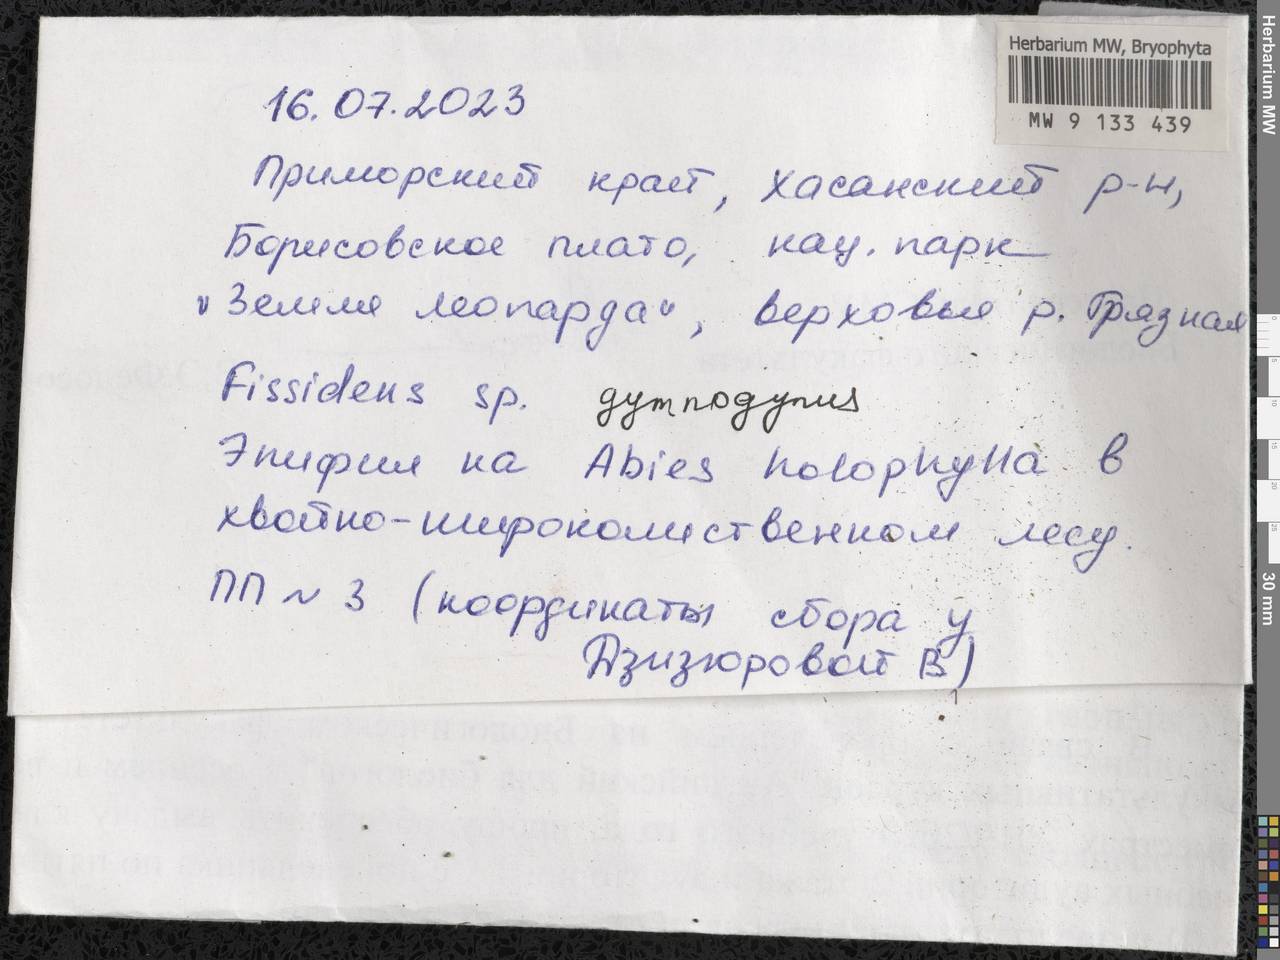 Herbarium MW, Bryophyta
MW 9 133 439
16.07.2023
Приморский край, Хасанский р-н,
Борисовское плато, нац. парк
"Земля леопарда", верховья р. Грязная
Fissidens sp. gymnogynus
Эпифил на Abies holophylla в
хвойно-широколиственном лесу.
ПП ~ 3 (координаты сбора у
Дзизюровой В)
Herbarium MW
0
5
10
15
20
25
30 mm